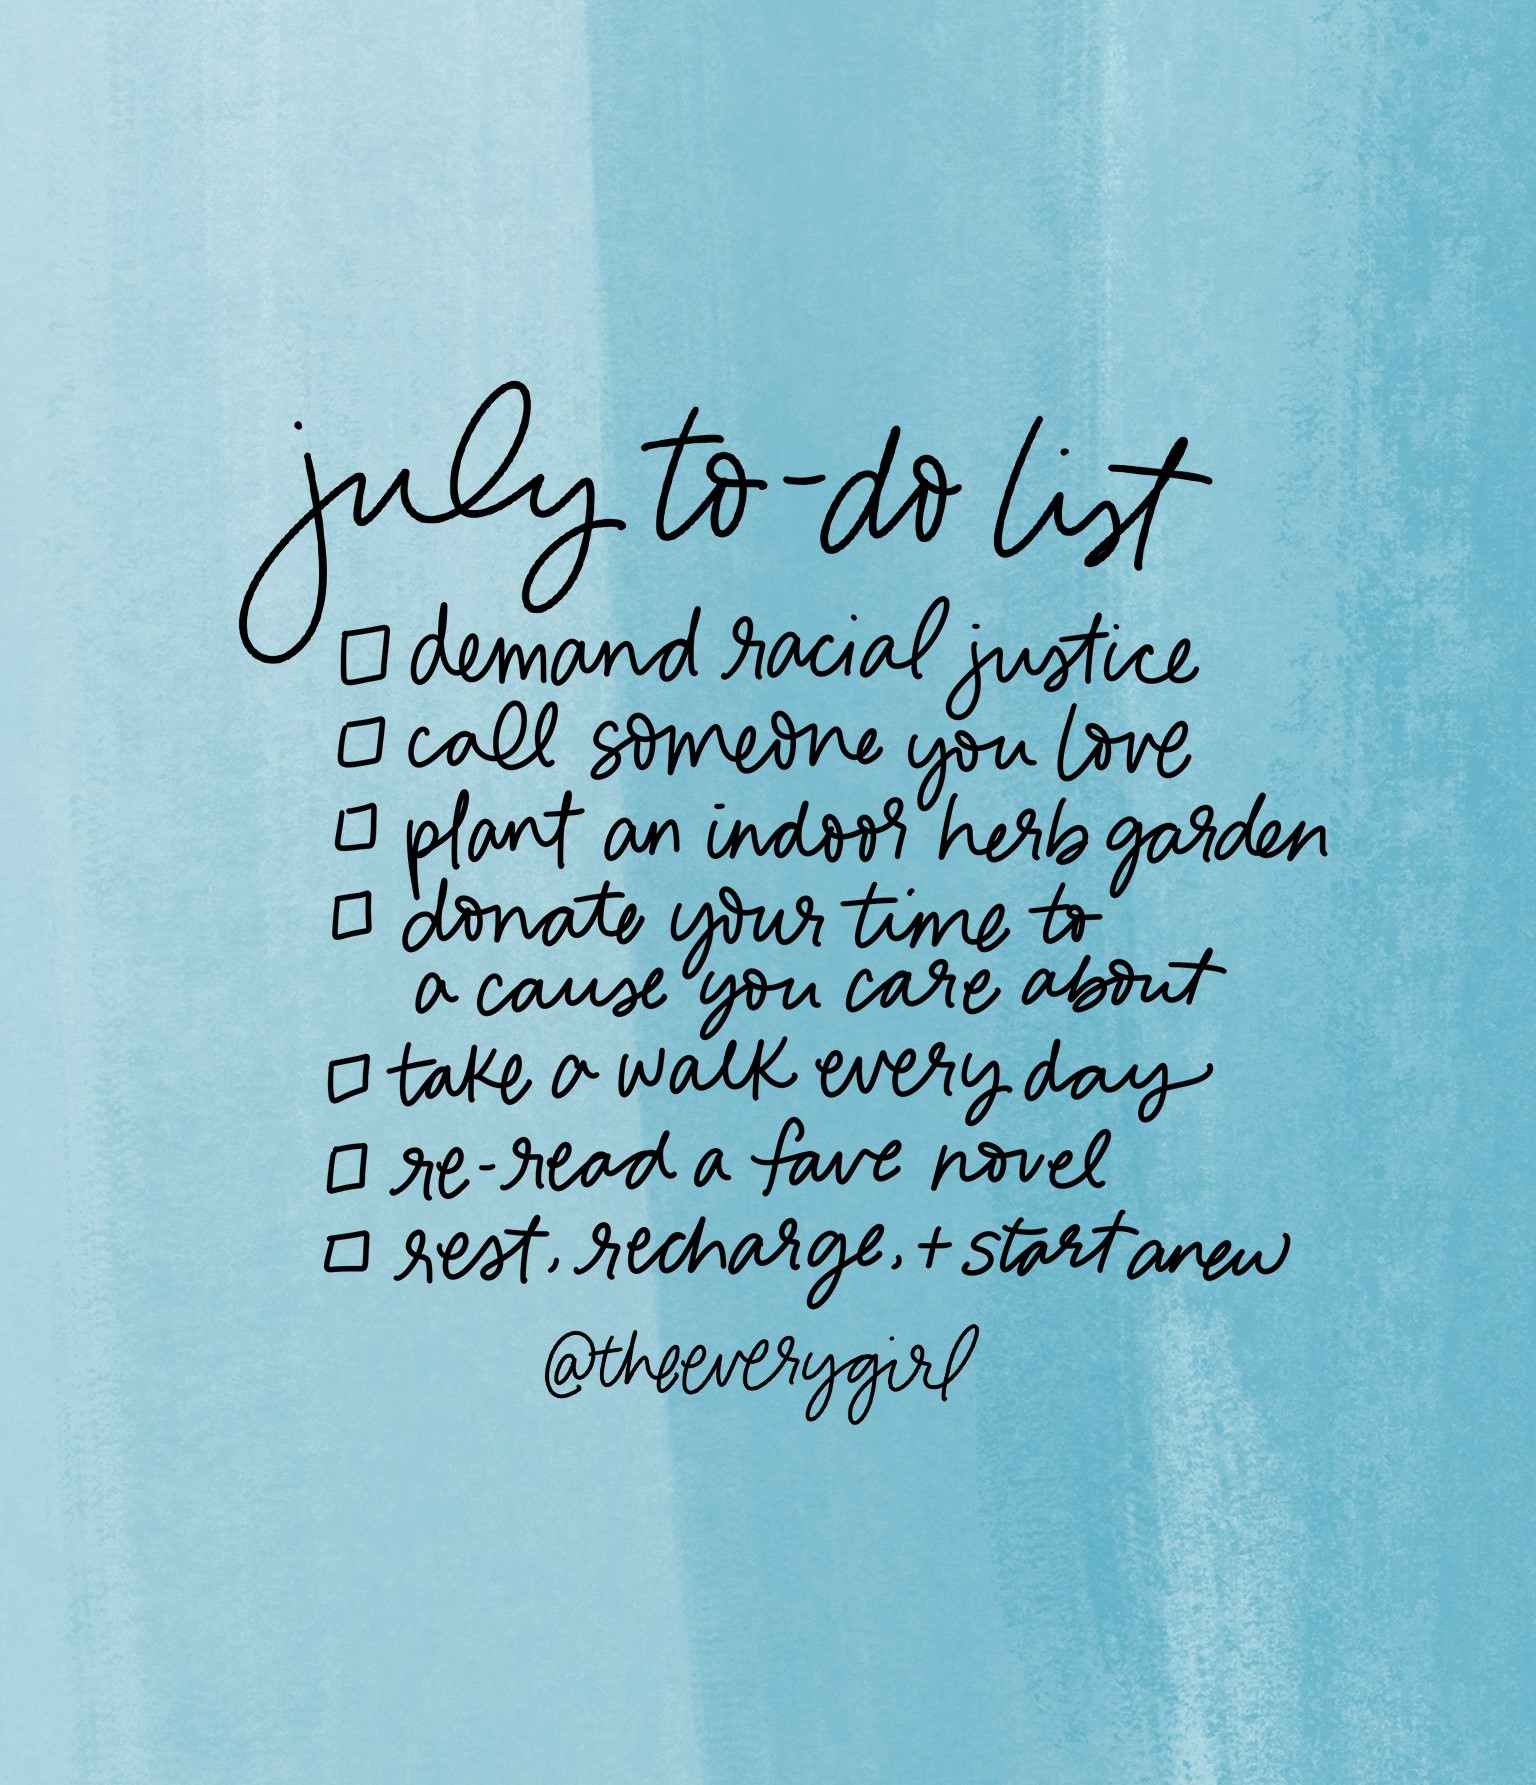 july to-do list
demand racial justice
call someone you love
plant an indoor herb garden
donate your time to
a cause you care about
take a walk every day
re-read a fave novel
rest, recharge, + start anew
@theeverygirl